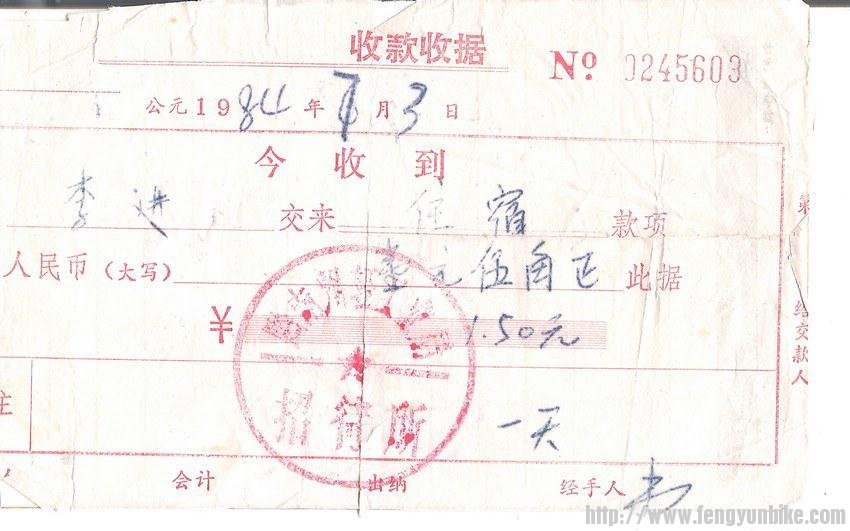 收款收据
Nº 0245603
公元1984年 月3日
今收到
李进 交来 住宿 款项
人民币(大写) 壹元伍角正 此据
¥ 1.50元
招待所
一天
注
会计 出纳 经手人
给交款人
http://www.fengyunbike.com